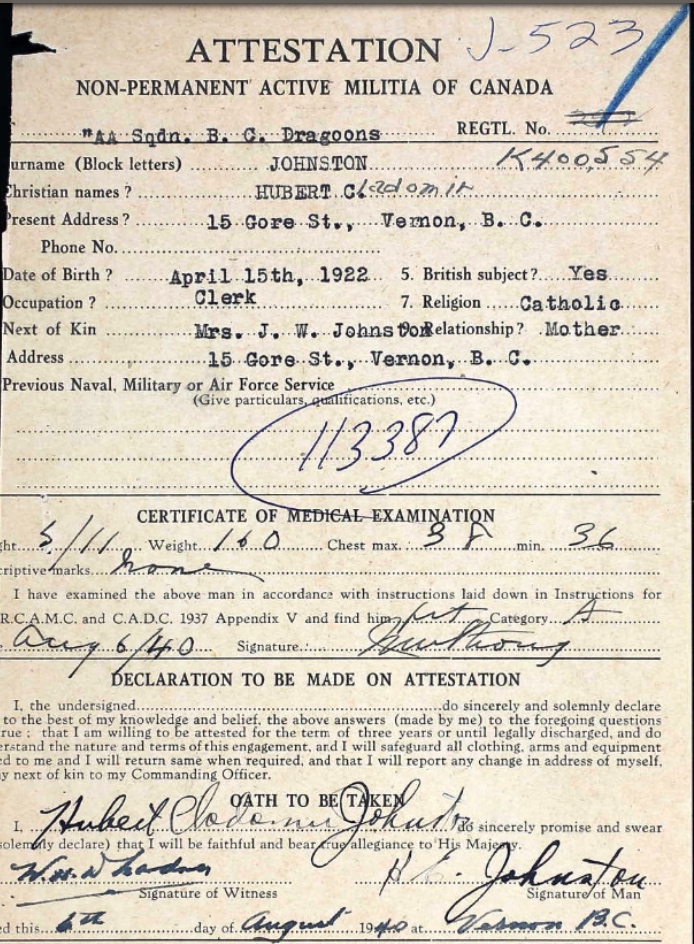 ATTESTATION J-523
NON-PERMANENT ACTIVE MILITIA OF CANADA
"AA Sqdn. B. C. Dragoons REGTL. No.
urname (Block letters) JOHNSTON K400,554
Christian names ? HUBERT C.ladomir
Present Address ? 15 Gore St., Vernon, B. C.
Phone No.
Date of Birth ? April 15th, 1922 5. British subject ? Yes
Occupation ? Clerk 7. Religion Catholic
Next of Kin Mrs. J. W. Johnston 9. Relationship ? Mother
Address 15 Gore St., Vernon, B. C.
Previous Naval, Military or Air Force Service
(Give particulars, qualifications, etc.)
113387
CERTIFICATE OF MEDICAL EXAMINATION
ght 5/11 Weight 160 Chest max. 38 min. 36
criptive marks none
I have examined the above man in accordance with instructions laid down in Instructions for
R.C.A.M.C. and C.A.D.C. 1937 Appendix V and find him fit Category A
Aug 6/40 Signature
DECLARATION TO BE MADE ON ATTESTATION
I, the undersigned do sincerely and solemnly declare
to the best of my knowledge and belief, the above answers (made by me) to the foregoing questions
rue ; that I am willing to be attested for the term of three years or until legally discharged, and do
erstand the nature and terms of this engagement, and I will safeguard all clothing, arms and equipment
ed to me and I will return same when required, and that I will report any change in address of myself,
y next of kin to my Commanding Officer.
OATH TO BE TAKEN
I, Hubert Clodomir Johnston do sincerely promise and swear
solemnly declare) that I will be faithful and bear true allegiance to His Majesty.
H Johnston
Signature of Witness Signature of Man
ed this 6th day of August 1940 at Vernon B.C.